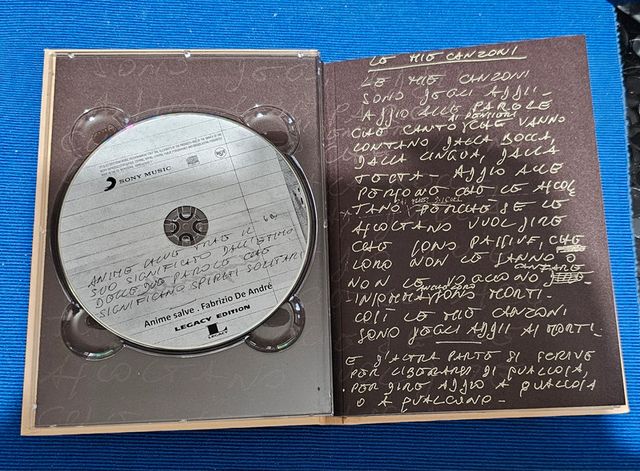 SONY MUSIC
ANIME SALVE TRAE IL
SUO SIGNIFICATO DALL'ETIMO
DELLE DUE PAROLE CHE
SIGNIFICANO SPIRITI SOLITARI
Anime salve . Fabrizio De André
LEGACY EDITION
LE MIE CANZONI
LE MIE CANZONI
SONO DEGLI ADDII -
ADDIO ALLE PAROLE
AI PENSIERI
CHE CANTO, CHE VANNO
LONTANO DALLA BOCCA,
DALLA LINGUA, DALLA
TESTA - ADDIO ALLE
PERSONE CHE LE ASCOL
TANO PERCHÉ SE LE
ASCOLTANO VUOL DIRE
CHE SONO PASSIVE, CHE
LORO NON LE SANNO O
CANTARE
NON LE VOGLIONO
SONO MORTI -
COSÌ LE MIE CANZONI
SONO DEGLI ADDII AI MORTI -
E D'ALTRA PARTE SI SCRIVE
PER LIBERARSI DI QUALCOSA,
PER DIRE ADDIO A QUALCOSA
O A QUALCUNO -